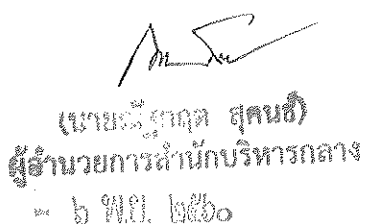 (นาย สุคนธ์)
ผู้อำนวยการสำนักบริหารกลาง
- ๖ พ.ย. ๒๕๖๐